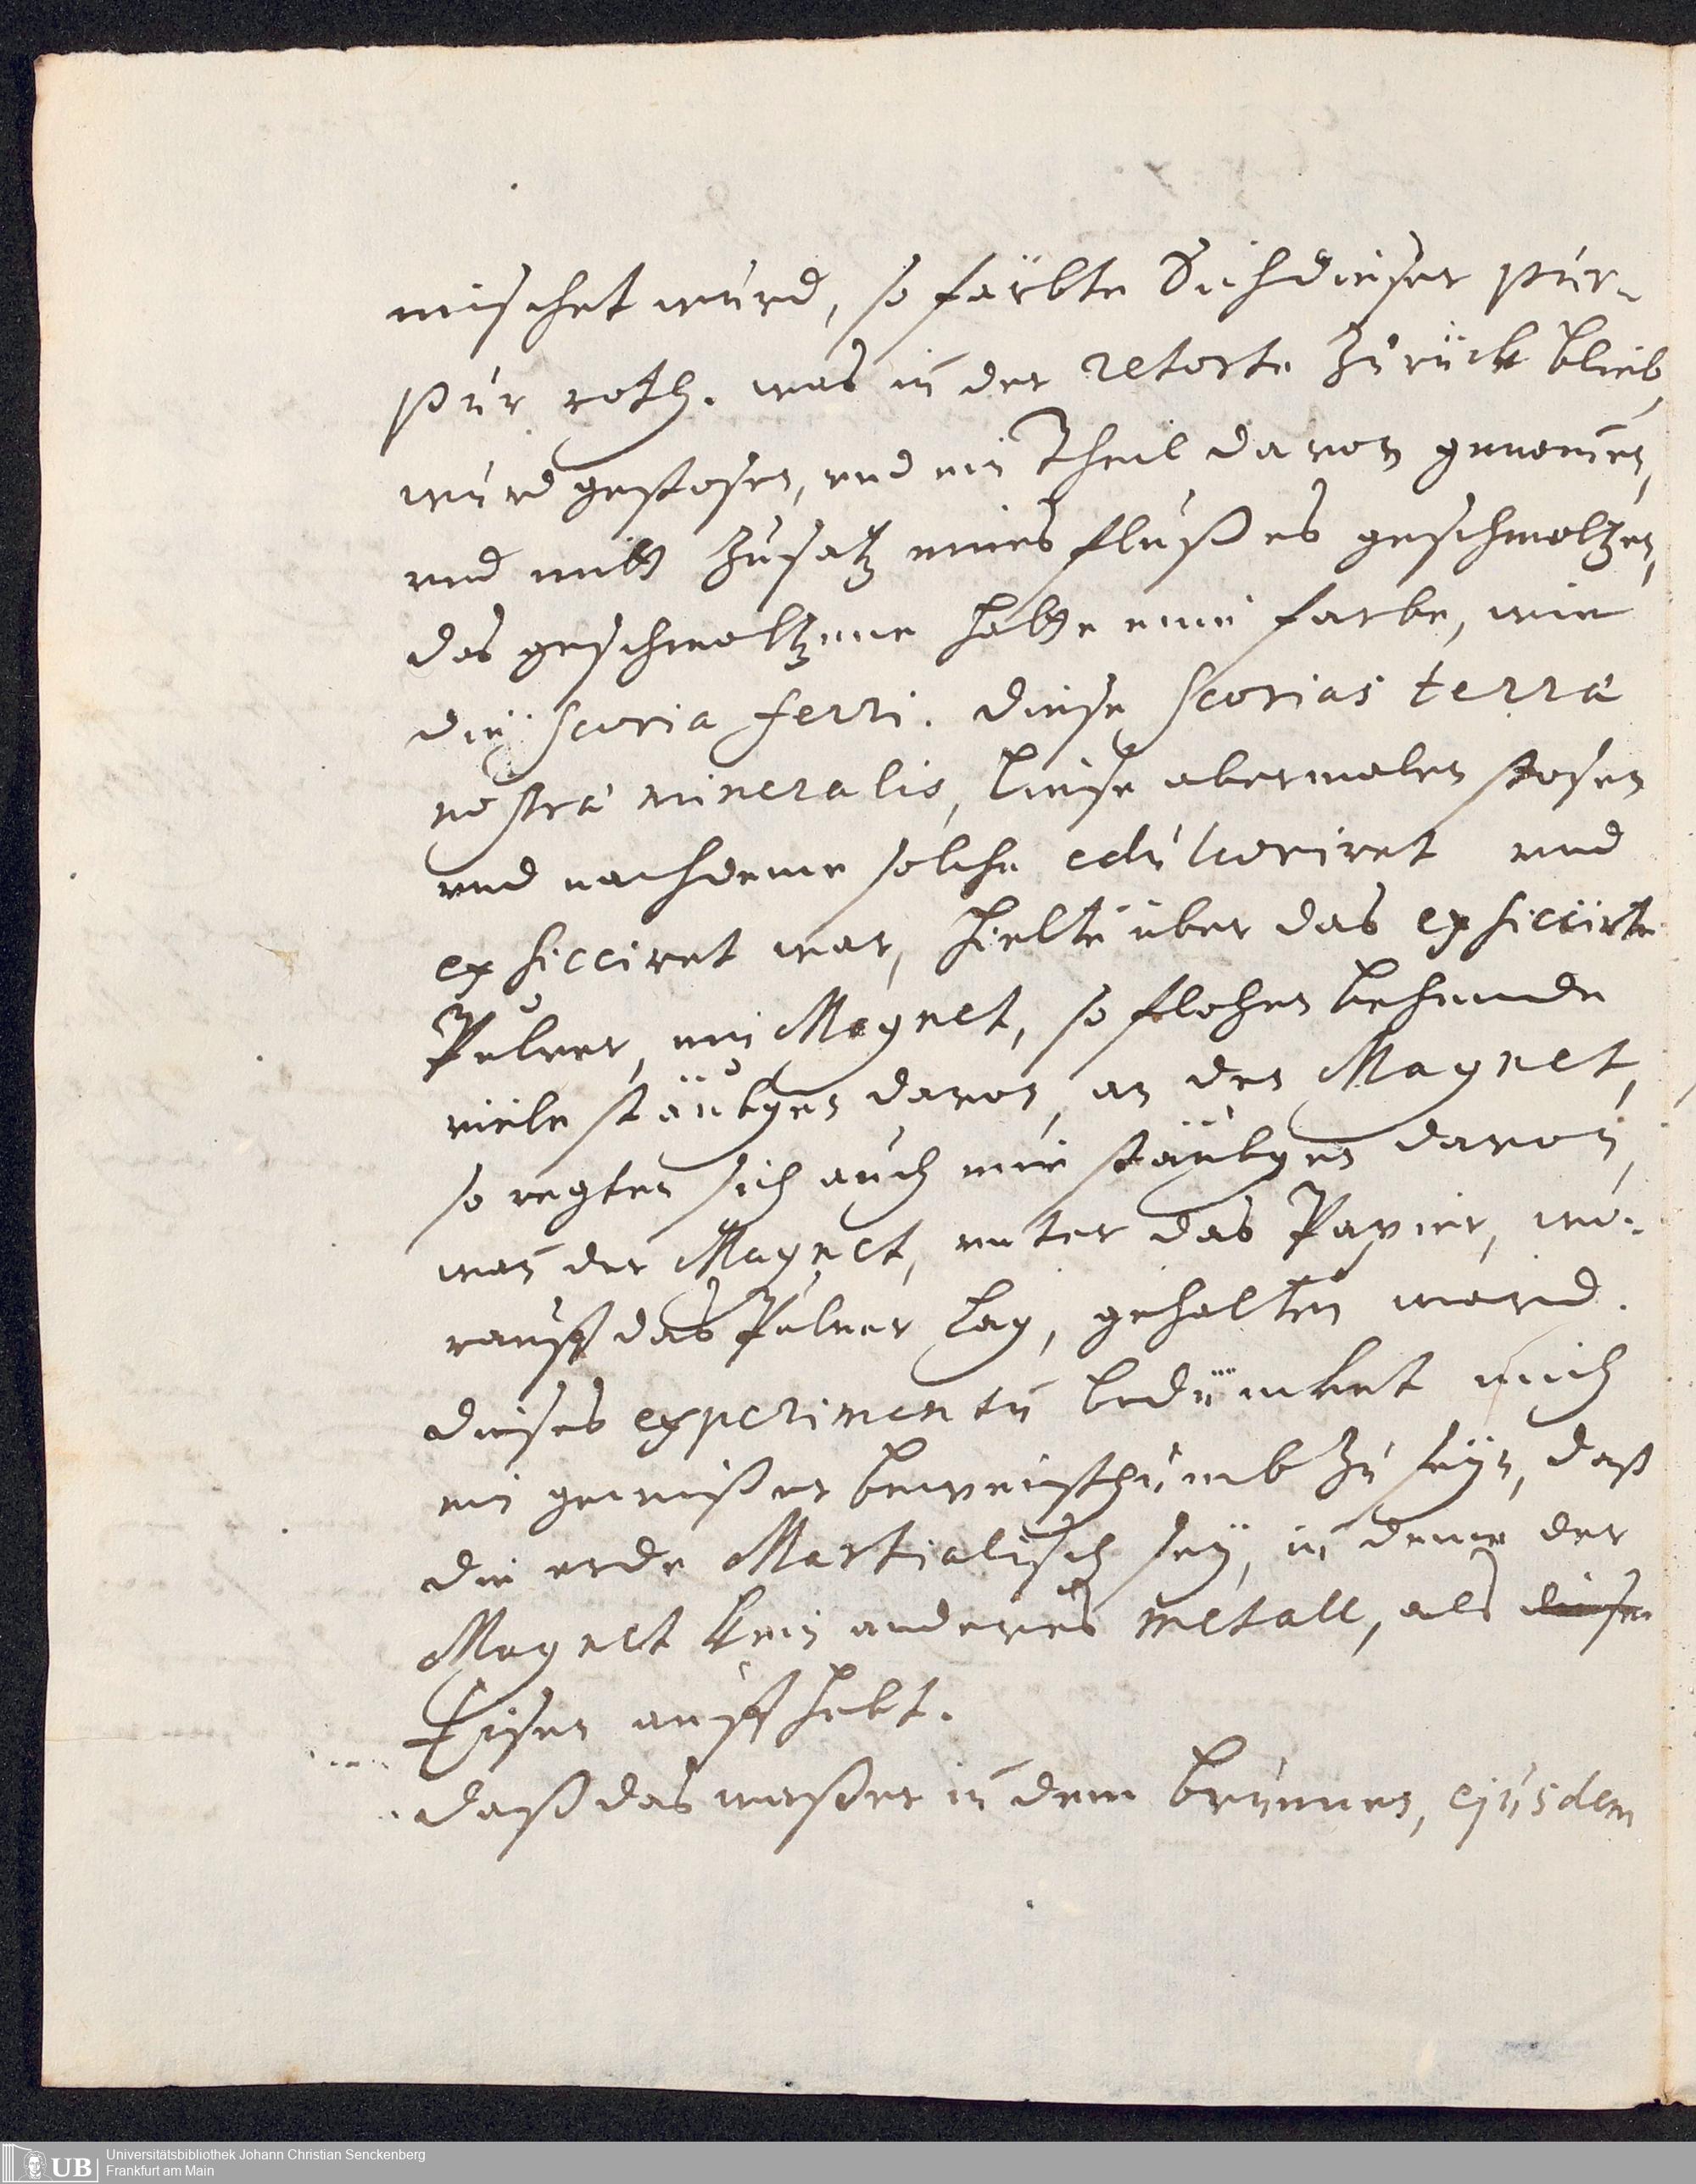 mischet wurd, so färbte Sich dieser pur-
pur roth. was in der retorte zurück blieb,
wurd gestosen, und ein Theil davon genomen,
und mitt Zusatz eines flußes geschmoltzen,
das geschmoltzene hatte eine farbe, wie
die scoria ferri. diese scorias terra
nostra mineralis, liese abermalen stosen
und nachdeme solche edulcoriret und
exsicciret war, hielte über das exsiccirte
Pulver, ein Magnet, so flohen behende
viele stäubgen davon, an den Magnet,
so regten sich auch eine stäubgen davon,
wan der Magnet, unter das Papier, wo-
rauff das Pulver lag, gehalten ward.
dieses experimentū bedüncket mich
ein gewißer beweisthumb zu seyn, daß
die erde Martialisch sey, in deme der
Magnet kein anderes metall, als diesen
Eisen auffhebt.
daß das waßer in dem brunnen, ejusdem
Universitätsbibliothek Johann Christian Senckenberg
UB Frankfurt am Main